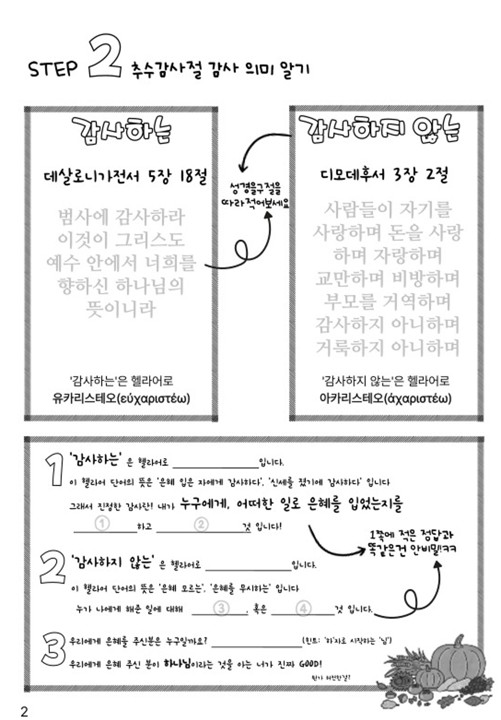 STEP 2 추수감사절 감사 의미 알기
감사하는
데살로니가전서 5장 18절
범사에 감사하라
이것이 그리스도
예수 안에서 너희를
향하신 하나님의
뜻이니라
'감사하는'은 헬라어로
유카리스테오(εὐχαριστέω)
성경말씀구절을
따라적어보세요
감사하지 않는
디모데후서 3장 2절
사람들이 자기를
사랑하며 돈을 사랑
하며 자랑하며
교만하며 비방하며
부모를 거역하며
감사하지 아니하며
거룩하지 아니하며
'감사하지 않는'은 헬라어로
아카리스테오(ἀχαριστέω)
1 '감사하는' 은 헬라어로 입니다.
이 헬라어 단어의 뜻은 '은혜 입은 자에게 감사하다', '신세를 졌기에 감사하다' 입니다
그래서 진정한 감사란! 내가 누구에게, 어떠한 일로 은혜를 입었는지를
① 하고 ② 것 입니다!
1쪽에 적은 정답과
똑같은건 안비밀!ㅋㅋ
2 '감사하지 않는' 은 헬라어로 입니다.
이 헬라어 단어의 뜻은 '은혜 모르는', '은혜를 무시하는' 입니다
누가 나에게 해준 일에 대해 ③ , 혹은 ④ 것 입니다.
3 우리에게 은혜를 주신분은 누구일까요? (힌트: '하'자로 시작하는 '님')
우리에게 은혜 주신 분이 하나님이라는 것을 아는 너가 진짜 GOOD!
2